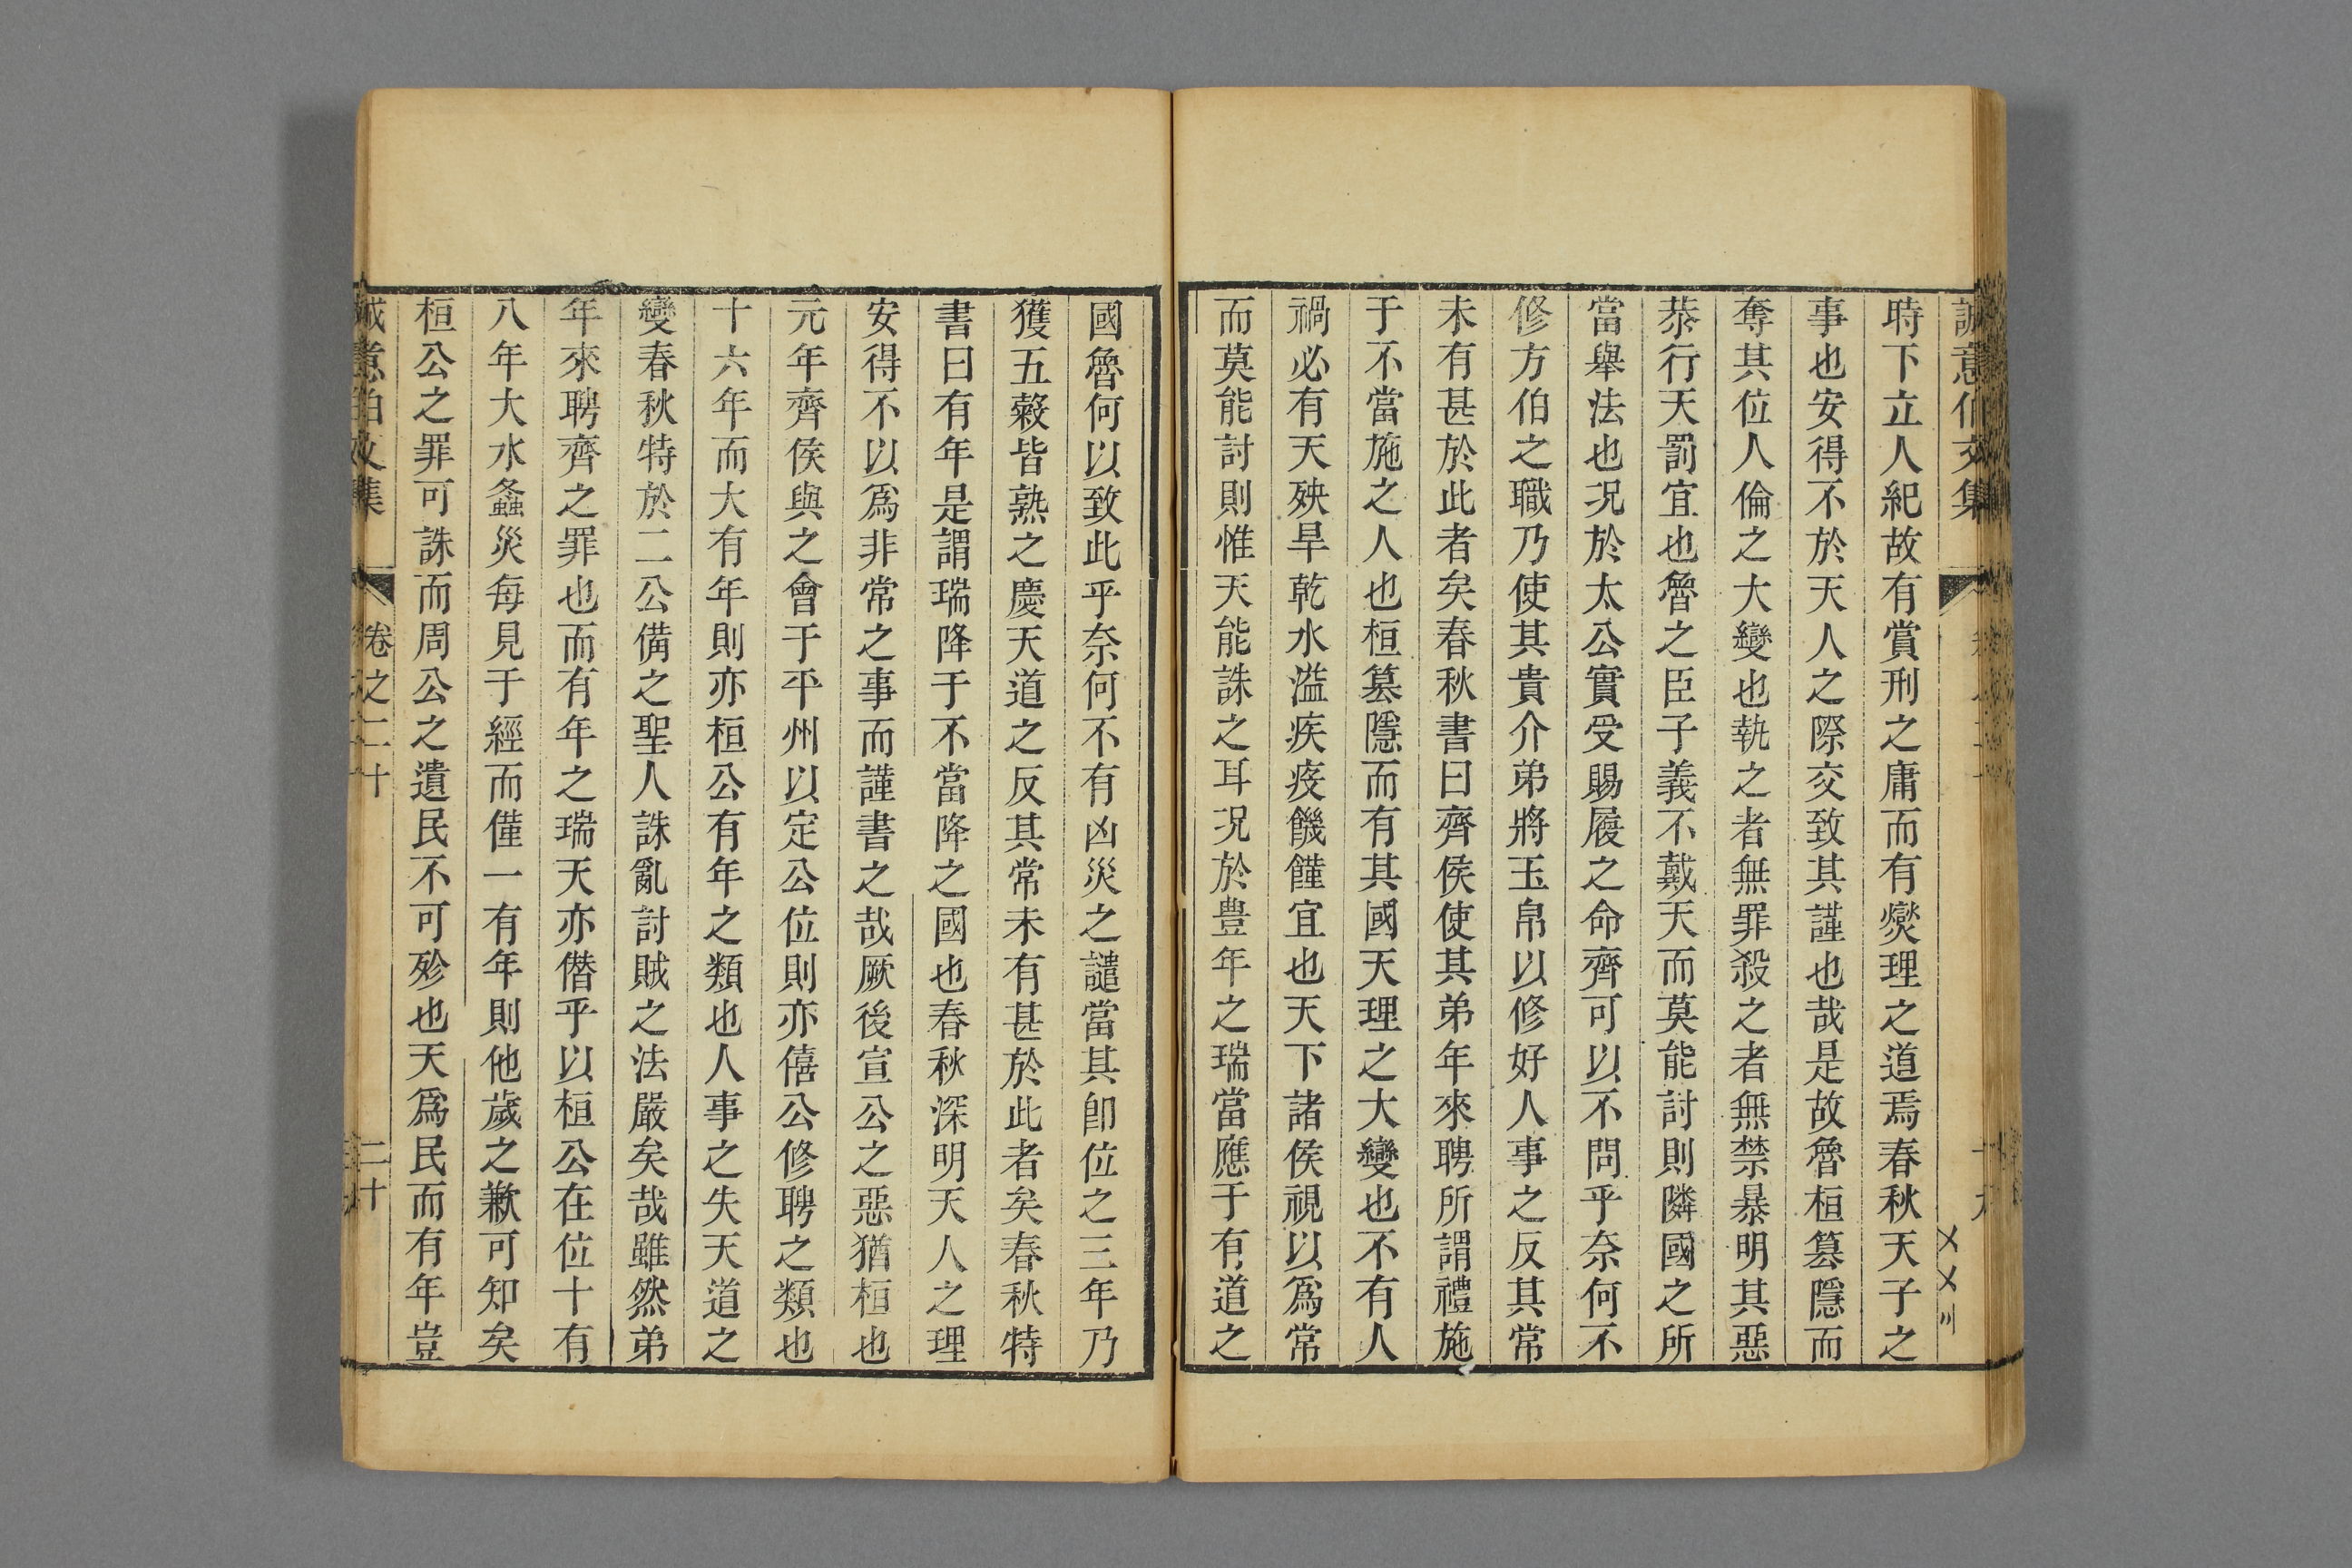 誠意伯文集
時下立人紀故有賞刑之庸而有爕理之道焉春秋天子之
事也安得不於天人之際交致其謹也哉是故魯桓篡隱而
奪其位人倫之大變也執之者無罪殺之者無禁暴明其惡
恭行天罰宜也魯之臣子義不戴天而莫能討則隣國之所
當舉法也況於太公實受賜履之命齊可以不問乎奈何不
修方伯之職乃使其貴介弟將玉帛以修好人事之反其常
未有甚於此者矣春秋書曰齊侯使其弟年來聘所謂禮施
于不當施之人也桓篡隱而有其國天理之大變也不有人
禍必有天殃旱乾水溢疾疫饑饉宜也天下諸侯視以爲常
而莫能討則惟天能誅之耳況於豊年之瑞當應于有道之
國魯何以致此乎奈何不有凶災之譴當其卽位之三年乃
獲五穀皆熟之慶天道之反其常未有甚於此者矣春秋特
書曰有年是謂瑞降于不當降之國也春秋深明天人之理
安得不以爲非常之事而謹書之哉厥後宣公之惡猶桓也
元年齊侯與之會于平州以定公位則亦僖公修聘之類也
十六年而大有年則亦桓公有年之類也人事之失天道之
變春秋特於二公備之聖人誅亂討賊之法嚴矣哉雖然弟
年來聘齊之罪也而有年之瑞天亦僭乎以桓公在位十有
八年大水螽災每見于經而僅一有年則他歲之歉可知矣
桓公之罪可誅而周公之遺民不可殄也天爲民而有年豈
誠意伯文集 卷之二十 二十